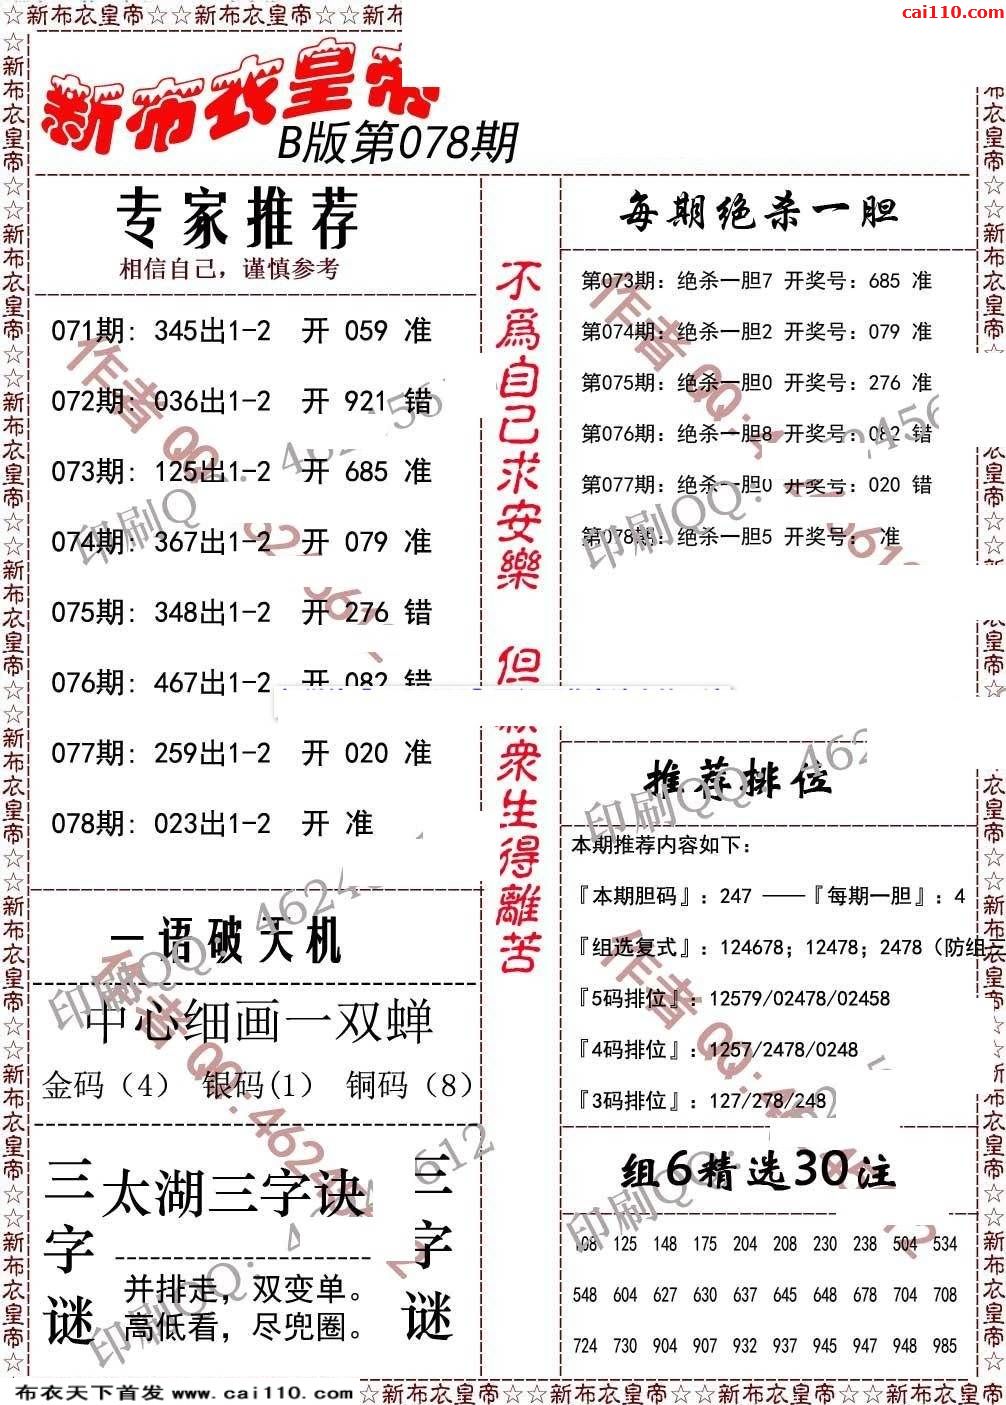 ☆新布衣皇帝☆☆新布衣皇帝☆☆新布
cai110.com
新布衣皇帝
B版第078期
专家推荐
相信自己，谨慎参考
071期: 345出1-2 开 059 准
072期: 036出1-2 开 921 错
073期: 125出1-2 开 685 准
074期: 367出1-2 开 079 准
075期: 348出1-2 开 276 错
076期: 467出1-2 开 082 错
077期: 259出1-2 开 020 准
078期: 023出1-2 开 准
不爲自己求安樂 但願衆生得離苦
每期绝杀一胆
第073期: 绝杀一胆7 开奖号: 685 准
第074期: 绝杀一胆2 开奖号: 079 准
第075期: 绝杀一胆0 开奖号: 276 准
第076期: 绝杀一胆8 开奖号: 082 错
第077期: 绝杀一胆0 开奖号: 020 错
第078期: 绝杀一胆5 开奖号: 准
推荐排位
本期推荐内容如下:
『本期胆码』: 247 ——『每期一胆』: 4
『组选复式』: 124678; 12478; 2478（防组三
『5码排位』: 12579/02478/02458
『4码排位』: 1257/2478/0248
『3码排位』: 127/278/248
一语破天机
中心细画一双蝉
金码（4） 银码(1) 铜码（8）
三字谜
太湖三字诀
并排走，双变单。
高低看，尽兜圈。
三字谜
组6精选30注
108 125 148 175 204 208 230 238 504 534
548 604 627 630 637 645 648 678 704 708
724 730 904 907 932 937 945 947 948 985
布衣天下首发 www.cai110.com
☆新布衣皇帝☆☆新布衣皇帝☆☆新布衣皇帝☆☆新布衣皇帝☆